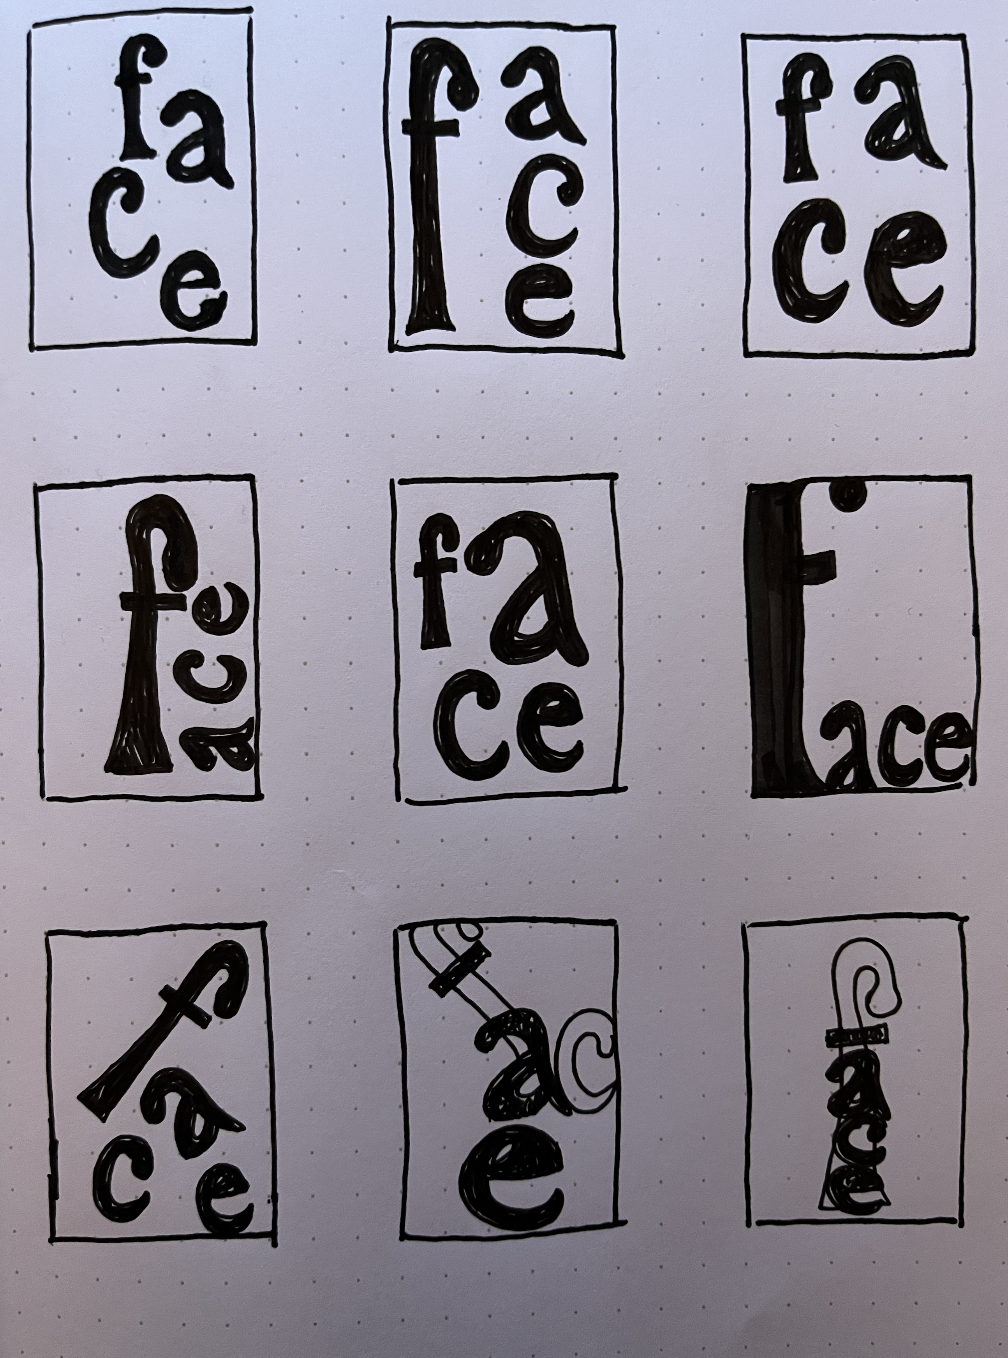 fa
ce
f
a
c
e
fa
ce
f
ace
fa
ce
face
f
a
ce
f
ac
e
f
a
c
e